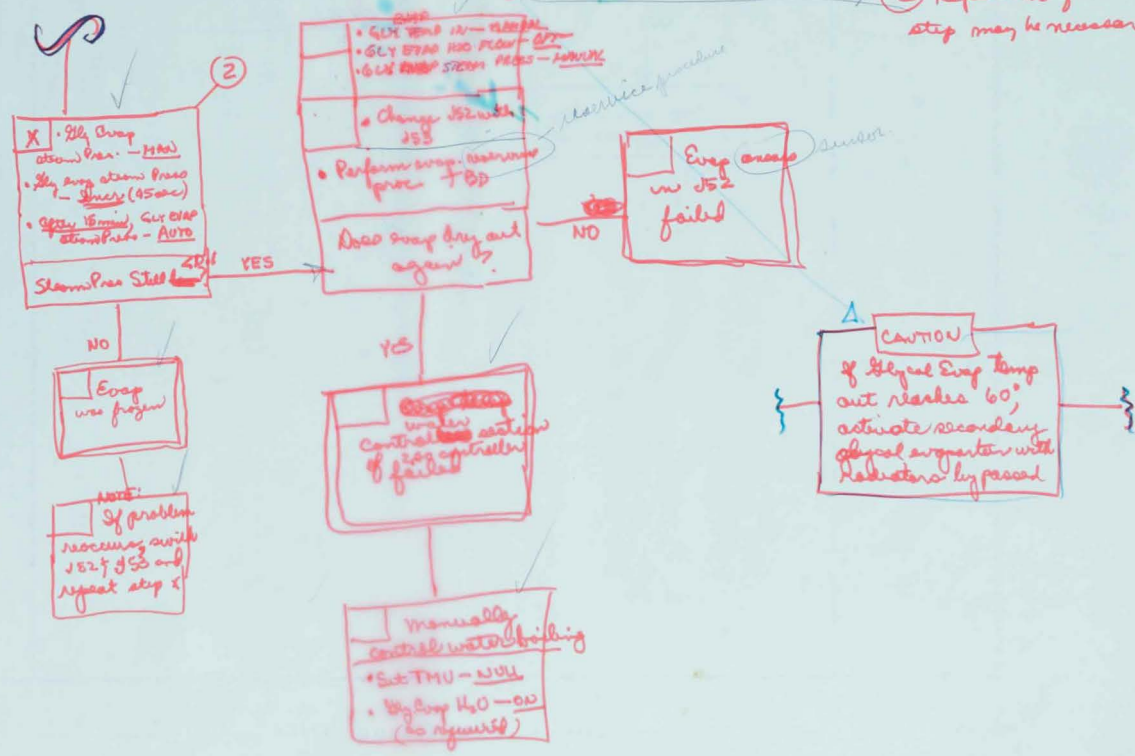 step may be necessar
2
X
• Gly Evap
steam Pres. — MAN
• Gly evap steam Press
— Incr (45 sec)
• after 15 min, GLY EVAP
steam Press — AUTO
Steam Pres Still
YES
NO
Evap
was frozen
NOTE:
If problem
reoccurs, switch
J52 & J53 and
repeat step X
• GLY TEMP IN — MANUAL
• GLY EVAP H2O FLOW — OFF
• GLY EVAP STEAM PRESS — MANUAL
• Change J52 with
J53
• Perform evap. reservice
proc. TBD
Does evap dry out
again?
reservice procedure
NO
Evap
in J52
failed
sensor
YES
water
control section
of 2.02 controller
failed
Manually
control water boiling
• Set TMU — NULL
• Gly Evap H2O — ON
(as required)
CAUTION
If Glycol Evap temp
out reaches 60°,
activate secondary
glycol evaporator with
radiators bypassed